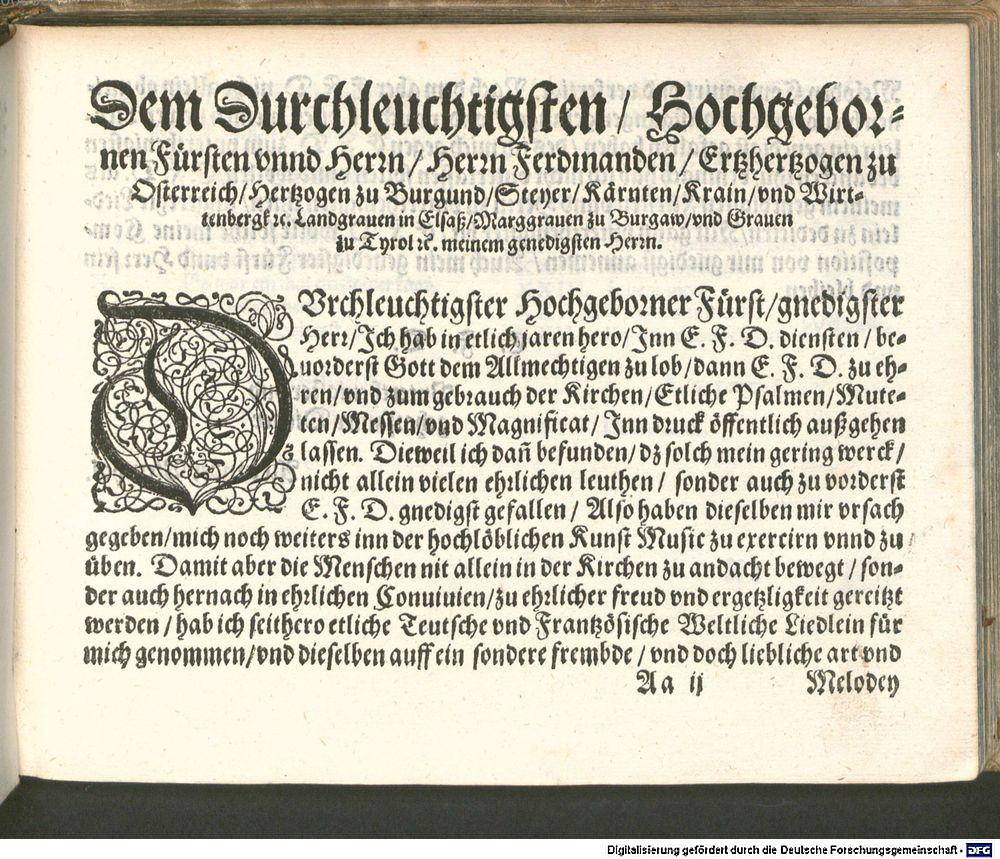 Dem Durchleuchtigsten / Hochgebor-
nen Fürsten vnnd Herrn / Herrn Ferdinanden / Ertzhertzogen zu
Osterreich / Hertzogen zu Burgund / Steyer / Kärnten / Krain / vnd Wirt-
tenbergk ꝛc. Landgrauen in Elsaß / Marggrauen zu Burgaw / vnd Grauen
zu Tyrol ꝛc. meinem genedigsten Herrn.
DVrchleuchtigster Hochgeborner Fürst / gnedigster
Herr / Ich hab in etlich jaren hero / Jnn E. F. D. diensten / be-
uorderst Gott dem Allmechtigen zu lob / dann E. F. D. zu eh-
ren / vnd zum gebrauch der Kirchen / Etliche Psalmen / Mute-
ten / Messen / vnd Magnificat / Jnn druck öffentlich außgehen
lassen. Dieweil ich dañ befunden / dz solch mein gering werck /
nicht allein vielen ehrlichen leuthen / sonder auch zu vorderst
E. F. D. gnedigst gefallen / Also haben dieselben mir vrsach
gegeben / mich noch weiters inn der hochlöblichen Kunst Music zu exercirn vnnd zu
üben. Damit aber die Menschen nit allein in der Kirchen zu andacht bewegt / son-
der auch hernach in ehrlichen Conuiuien / zu ehrlicher freud vnd ergetzligkeit gereitzt
werden / hab ich seithero etliche Teutsche vnd Frantzösische Weltliche Liedlein für
mich genommen / vnd dieselben auff ein sondere frembde / vnd doch liebliche art vnd
Aa ij Melodey
Digitalisierung gefördert durch die Deutsche Forschungsgemeinschaft - DFG